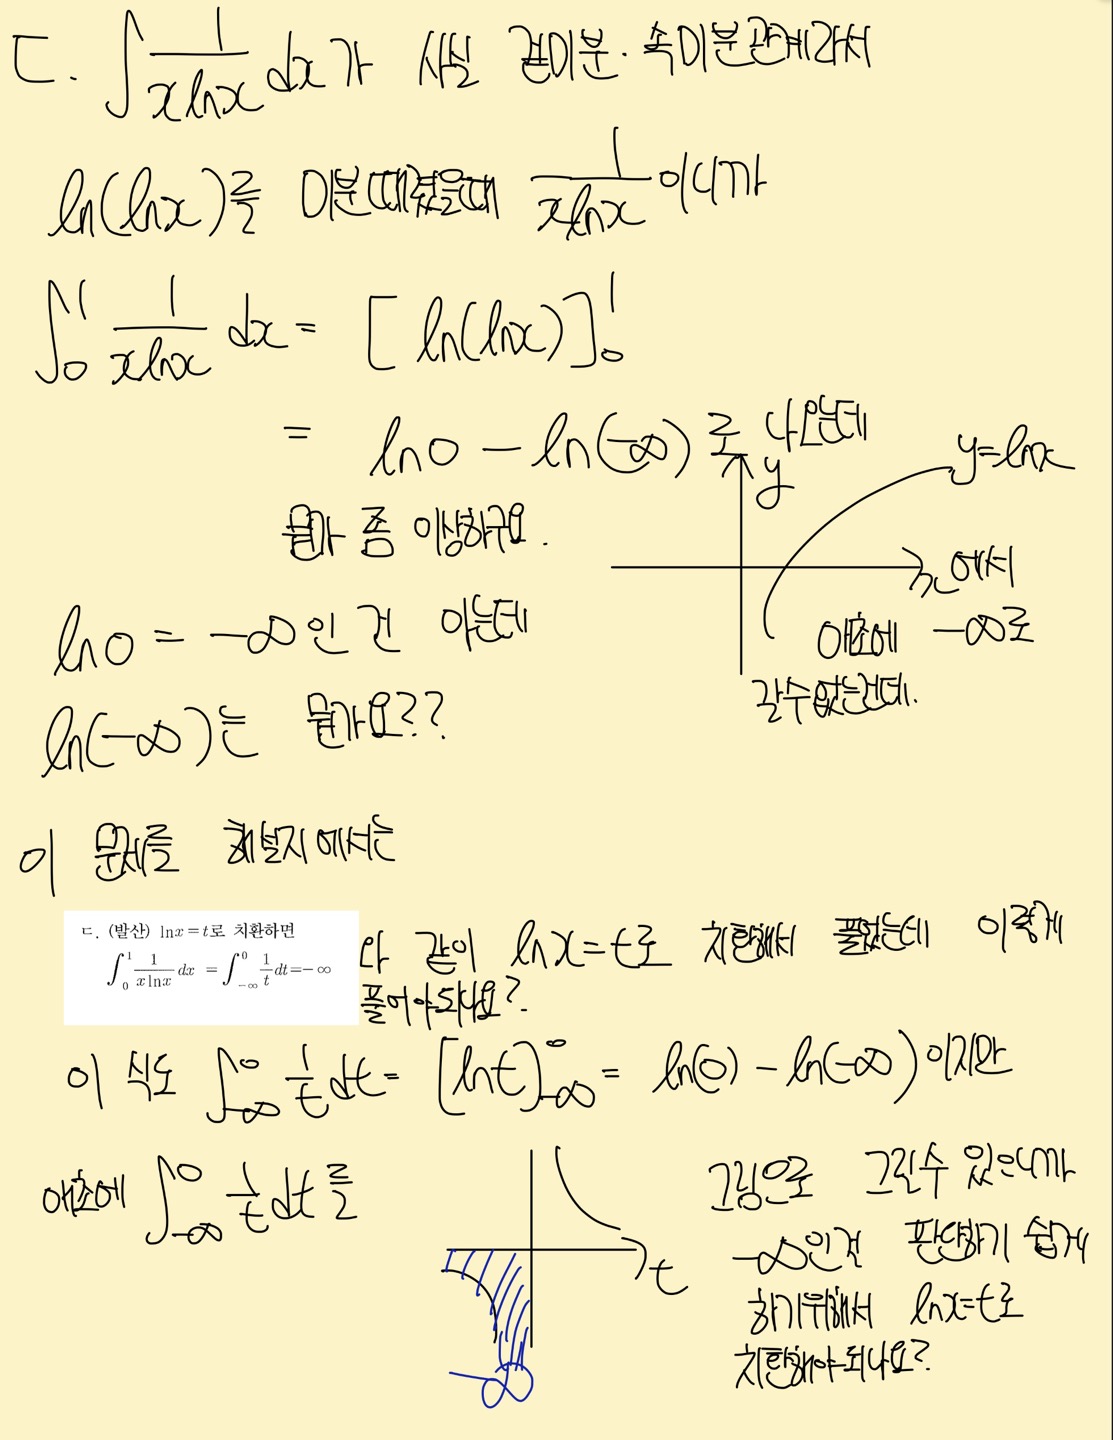 ㄷ. ∫ 1/(x lnx) dx가 사실 겉미분·속미분관계라서
ln(lnx)를 미분때렸을때 1/(x lnx) 이니까
∫₀¹ 1/(x lnx) dx = [ln(lnx)]₀¹
= ln0 - ln(-∞)로 나오는데
뭔가 좀 이상하구요.
y
y=lnx
ln0 = -∞인건 아는데
에서
애초에 -∞로
갈수없는건데.
ln(-∞)는 뭔가요??
이 문제를 해설지에서는
ㄷ. (발산) lnx=t로 치환하면
∫₀¹ 1/(x lnx) dx = ∫₋∞⁰ 1/t dt = -∞
와 같이 lnx=t로 치환해서 풀었는데 이렇게
풀어야되나요?.
이 식도 ∫₋∞⁰ 1/t dt = [lnt]₋∞⁰ = ln(0) - ln(-∞)이지만
애초에 ∫₋∞⁰ 1/t dt를
t
-∞
그림으로 그릴수 있으니까
-∞인걸 판단하기 쉽게
하기위해서 lnx=t로
치환해야되나요?